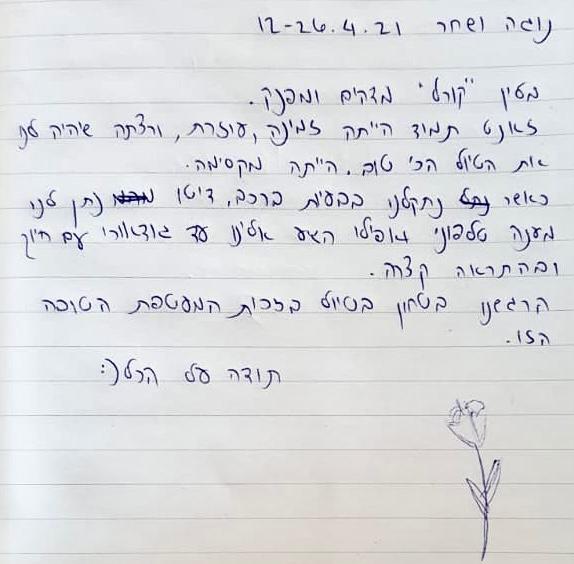 נוגה ושחר 12-26.4.21
מטיין "קורל" מדהים ומפנק.
ז'אנט תמיד הייתה זמינה, עוזרת, ורצתה שיהיה לנו
את הטיול הכי טוב. הייתה מקסימה.
כאשר נתקלנו בבעית ברכב, דיטו נתן לנו
מענה טלפוני ואפילו הגיע אלינו עד גודאורי עם חיוך
ובהתראה קצרה.
הרגשנו בטחון בטיול בזכות המעטפת הטובה
הזו.
תודה על הכל (: